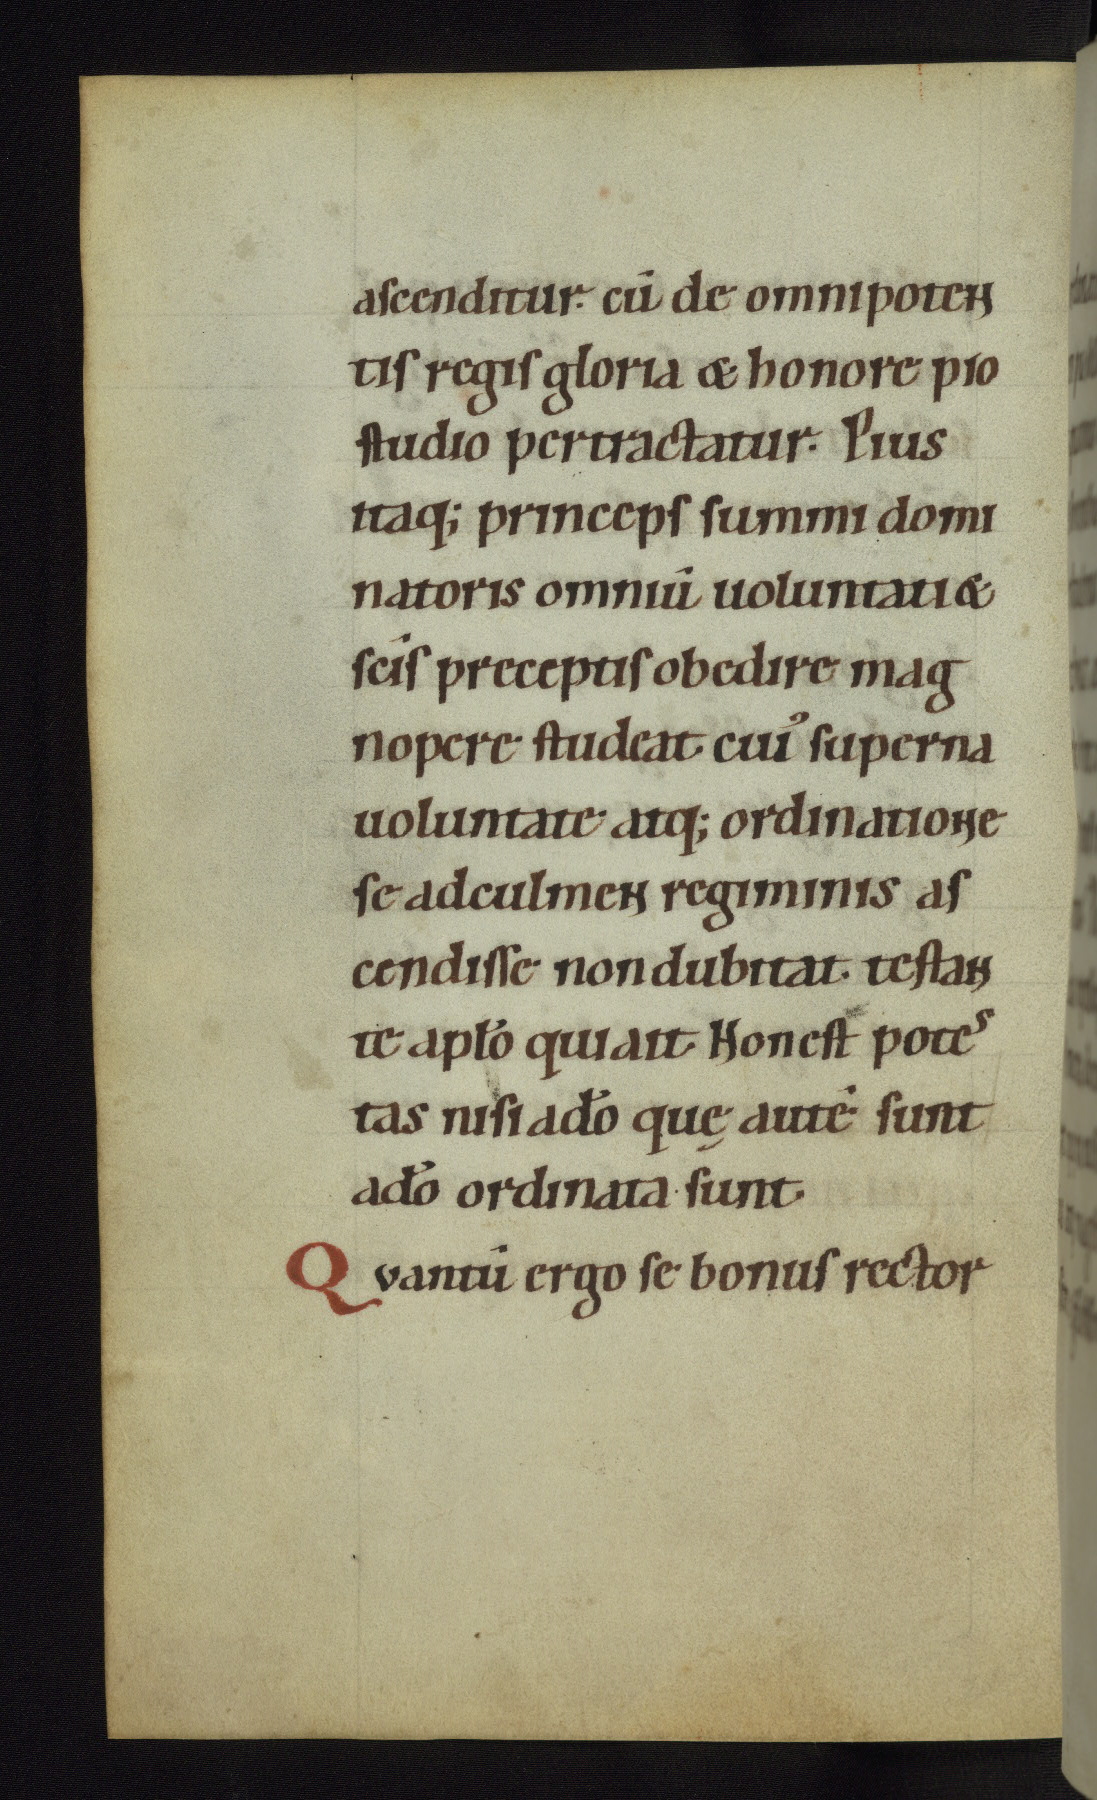 aſcenditur. cū de omnipoten
tiſ regiſ gloria & honore pio
ſtudio pertractatur. Pius
itaq; princepſ ſummi domi
natoris omniū uoluntati &
ſcīſ preceptiſ obedire mag
nopere ſtudeat. cuiꝰ ſuperna
uoluntate atq; ordinatione
ſe ad culmen regiminis aſ
cendiſſe non dubitat. teſtan
te apło qui ait. Non eſt poteſ
tas niſi a do̅ quę autē ſunt
a do̅ ordinata ſunt.
Qvantū ergo ſe bonuſ rector